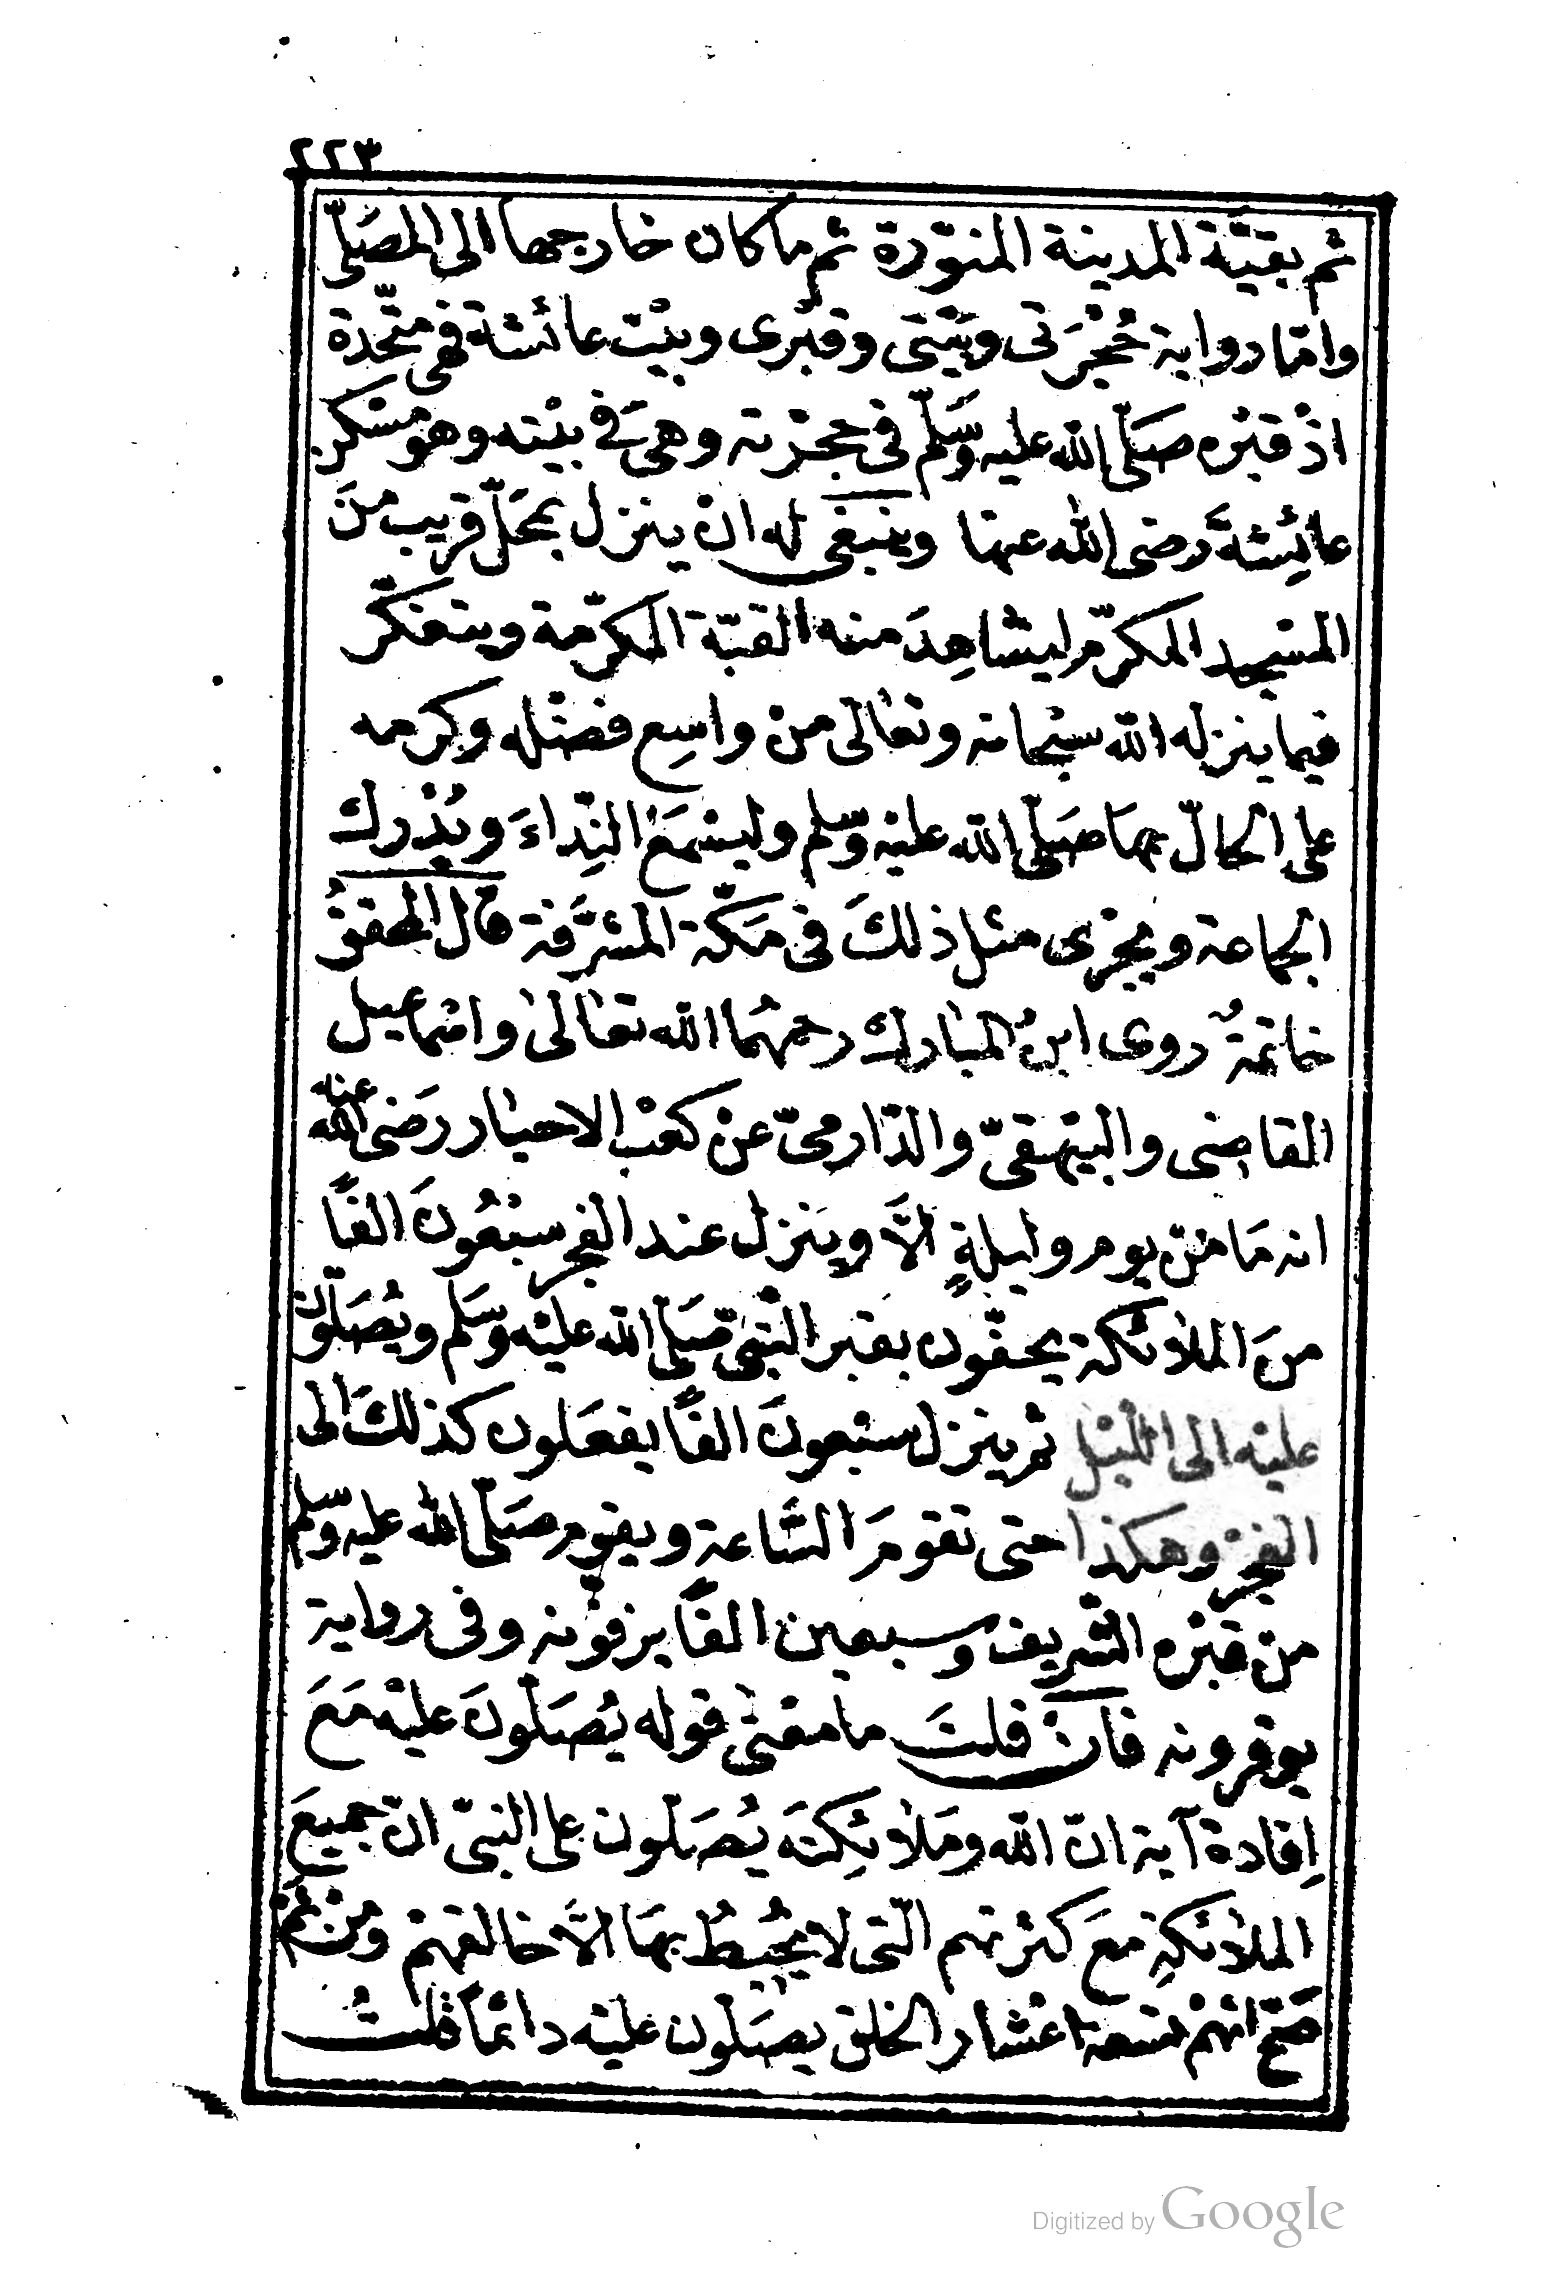 ٢٢٣
ثم بقيّة المدينة المنوّرة ثم ما كان خارجها الى المصَلّى
وامّا رواية حُجْرَتى وبَيْتى وقبْرى وبيْت عائشة فهى متّحدة
اذْ قبْره صَلّى الله عليه وسَلّم فى حجْرته وهىَ فى بيْته وهو مسْكن
عائِشةَ رضى الله عنها وينبغى له انْ ينزل بمَحَلّ قريب منَ
المسْجد المكرّم ليشاهِدَ منه القبّة المكرّمة ويتفكّر
فيما ينزله الله سبْحانه وتعالى منْ واسِع فضْله وكرمه
على الحالّ بهَا صَلى الله عليْه وسّلم وليسْمَعْ النِّداءَ ويُدْرك
الجماعة ويجْرى مثل ذلكَ فى مَكّة المشرَّفة قال المحققُ
خاتمةٌ روى ابنُ المبارك رحمهُما الله تعالىٰ واسْماعيل
القاضى والبيْهقىّ والدّارمىّ عنْ كعْب الاحبار رَضى الله عنه
انه مَا منْ يوم وليلةٍ الاَّ وينزل عند الفجر سبْعُونَ الفًا
منَ الملائكة يحفّون بقبر النّبىّ صَلى الله عليْه وسَلم ويُصَلّون
عليْه الى اللّيْل ثم ينزل سبْعونَ الفًا يفعَلون كذلكَ الى
الفجْر وهكذا حتى تقومَ السَّاعة ويقوم صَلّى الله عليه وسّلم
منْ قبْره الشّريف وسبعين الفًا يزفوْنه وفى رواية
يوقرونه فانْ قلتَ ما معْنى قوله يُصَلونَ عليْه مَعَ
اِفادة آية انّ الله ومَلائِكتَه يُصَلون على النبىّ انّ جميعَ
الملائكةِ معَ كثرتهم الّتى لا يُحِيطُ بهَا الاَّ خالقهمْ ومنْ ثمّ
صَحّ انهمْ تسْعة اعْشار الخلق يصَلون عليْه دائمًا قلتُ
Digitized by Google